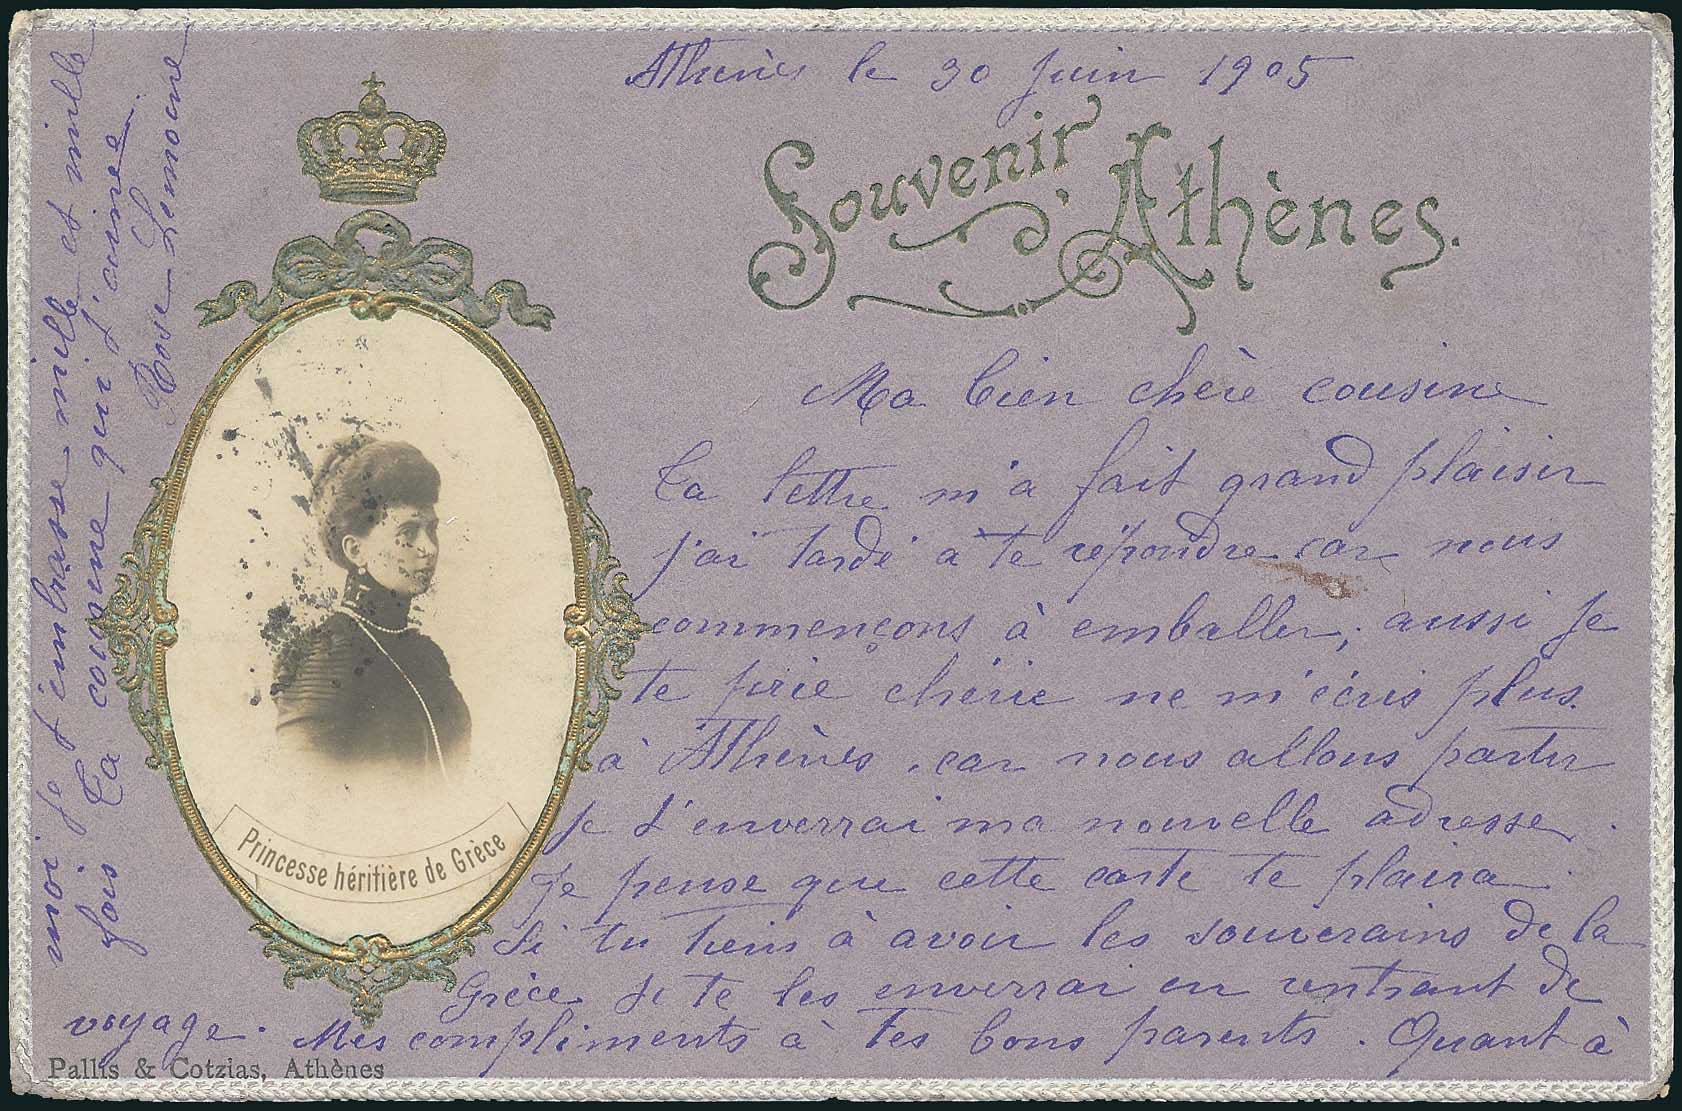 Athènes le 30 juin 1905
Souvenir
d'Athènes.
Ma bien chère cousine
Ta lettre m'a fait grand plaisir
j'ai tardé à te répondre car nous
commençons à emballer, aussi je
te prie chérie ne m'écris plus
à Athènes, car nous allons partir
je t'enverrai ma nouvelle adresse.
Je pense que cette carte te plaira.
Si tu tiens à avoir les souverains de la
Grèce je te les enverrai en rentrant de
voyage. Mes compliments à tes bons parents. Quant à
moi je t'embrasse mille et mille
fois Ta cousine qui t'aime.
Rose Lemoine
Princesse héritière de Grèce
Pallis & Cotzias, Athènes